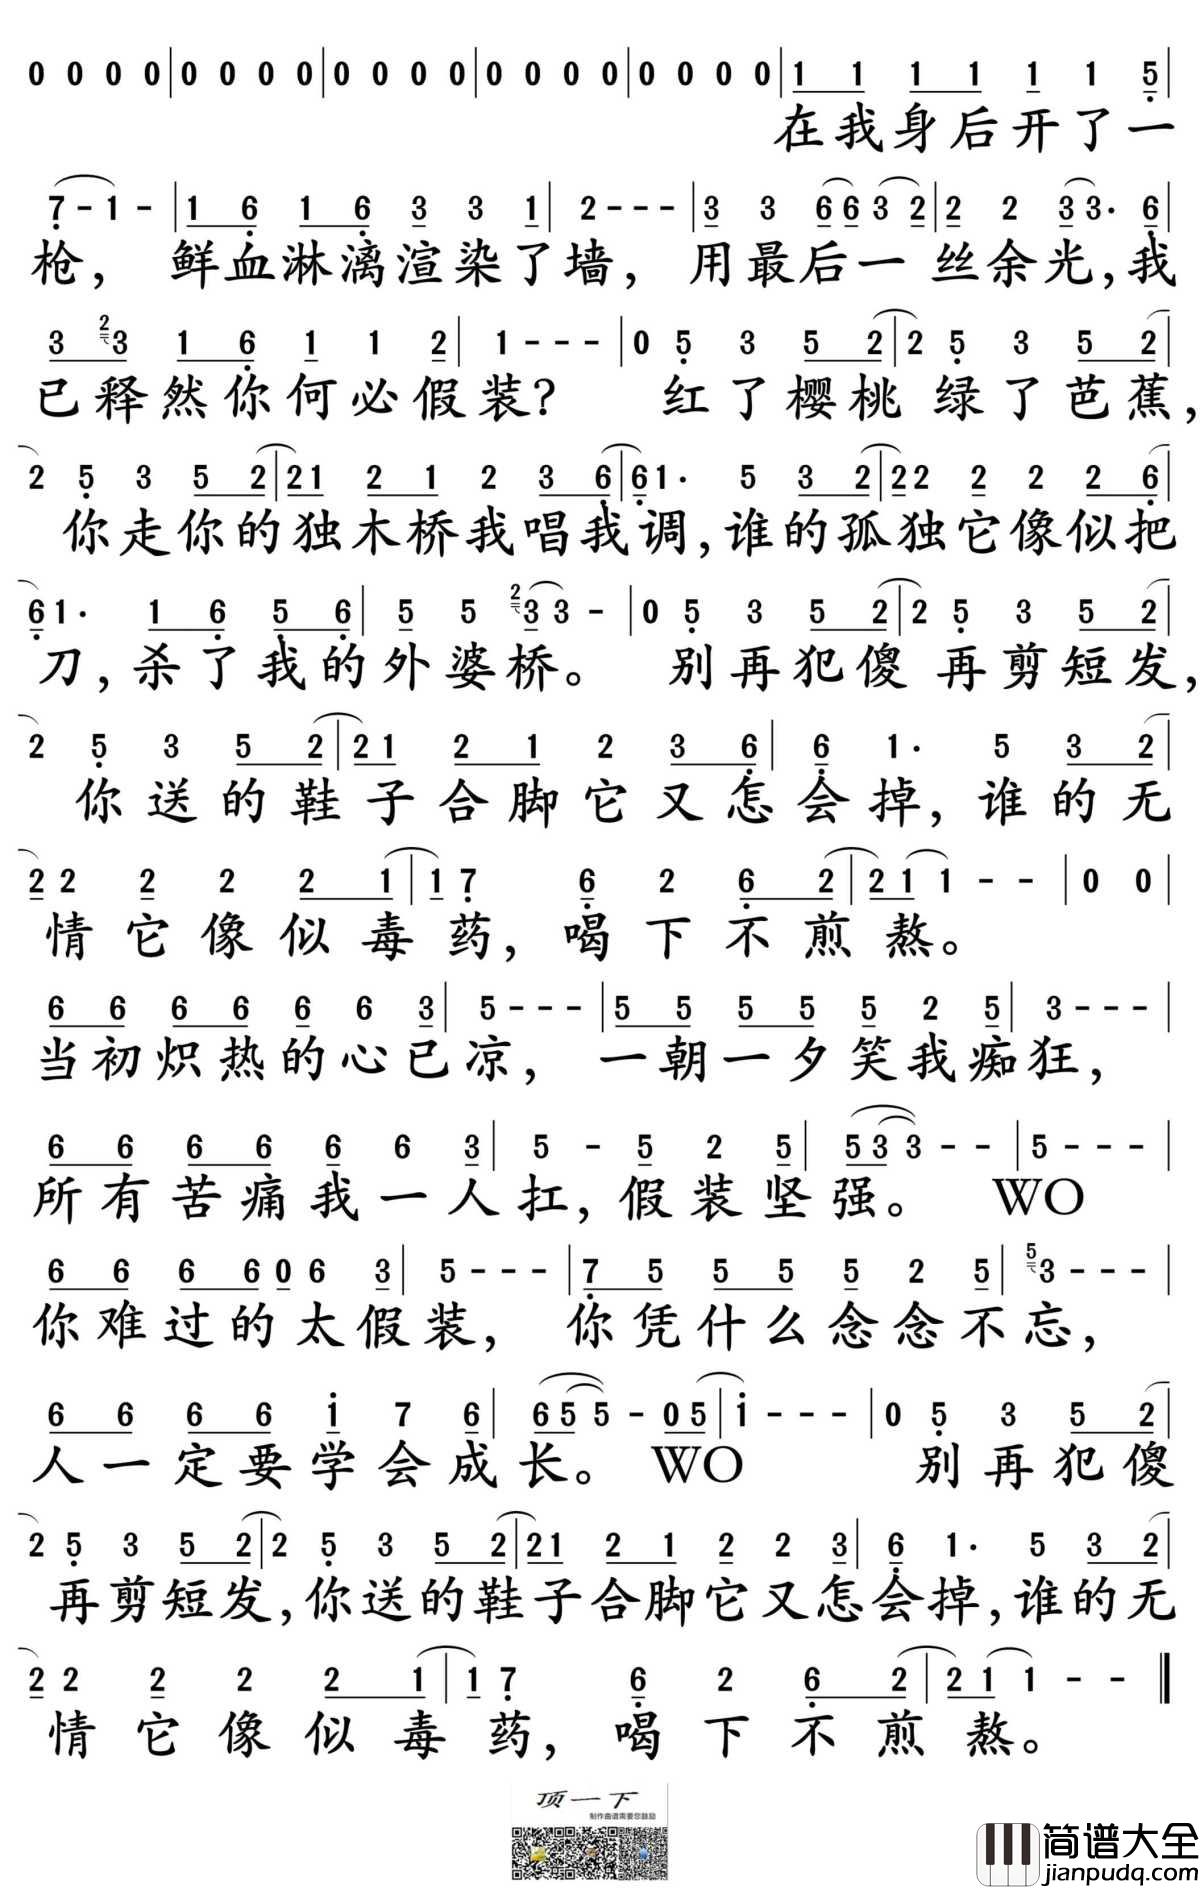 0 0 0 0|0 0 0 0|0 0 0 0|0 0 0 0|0 0 0 0|1 1 1 1 1 1 5|
在我身后开了一
7 - 1 -|1 6 1 6 3 3 1|2 - - -|3 3 6 6 3 2|2 2 3 3· 6|
枪，鲜血淋漓渲染了墙，用最后一丝余光，我
3 2 3 1 6 1 1 2|1 - - -|0 5 3 5 2|2 5 3 5 2|
已释然你何必假装？红了樱桃绿了芭蕉，
2 5 3 5 2|2 1 2 1 2 3 6|6 1· 5 3 2|2 2 2 2 2 6|
你走你的独木桥我唱我调，谁的孤独它像似把
6 1· 1 6 5 6|5 5 2 3 3 -|0 5 3 5 2|2 5 3 5 2|
刀，杀了我的外婆桥。别再犯傻再剪短发，
2 5 3 5 2|2 1 2 1 2 3 6|6 1· 5 3 2|
你送的鞋子合脚它又怎会掉，谁的无
2 2 2 2 2 1|1 7 6 2 6 2|2 1 1 - -|0 0|
情它像似毒药，喝下不煎熬。
6 6 6 6 6 6 3|5 - - -|5 5 5 5 5 2 5|3 - - -|
当初炽热的心已凉，一朝一夕笑我痴狂，
6 6 6 6 6 6 3|5 - 5 2 5|5 3 3 - -|5 - - -|
所有苦痛我一人扛，假装坚强。WO
6 6 6 6 0 6 3|5 - - -|7 5 5 5 5 2 5|5 3 - - -|
你难过的太假装，你凭什么念念不忘，
6 6 6 6 i 7 6|6 5 5 - 0 5|i - - -|0 5 3 5 2|
人一定要学会成长。WO 别再犯傻
2 5 3 5 2|2 5 3 5 2|2 1 2 1 2 2 3|6 1· 5 3 2|
再剪短发，你送的鞋子合脚它又怎会掉，谁的无
2 2 2 2 2 1|1 7 6 2 6 2|2 1 1 - -‖
情它像似毒药，喝下不煎熬。
顶一下
制作曲谱需要您鼓励
简谱大全
jianpudq.com